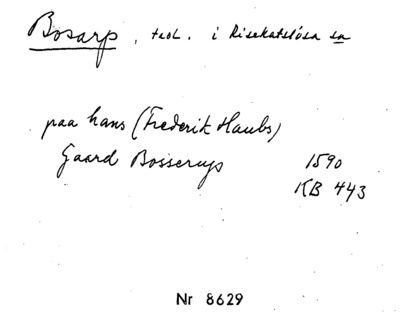 Bosarp, tecl. i Risekatslösa sn
paa hans (Frederik Haubs)
Gaard Bosserups 1590
KB 443
Nr 8629